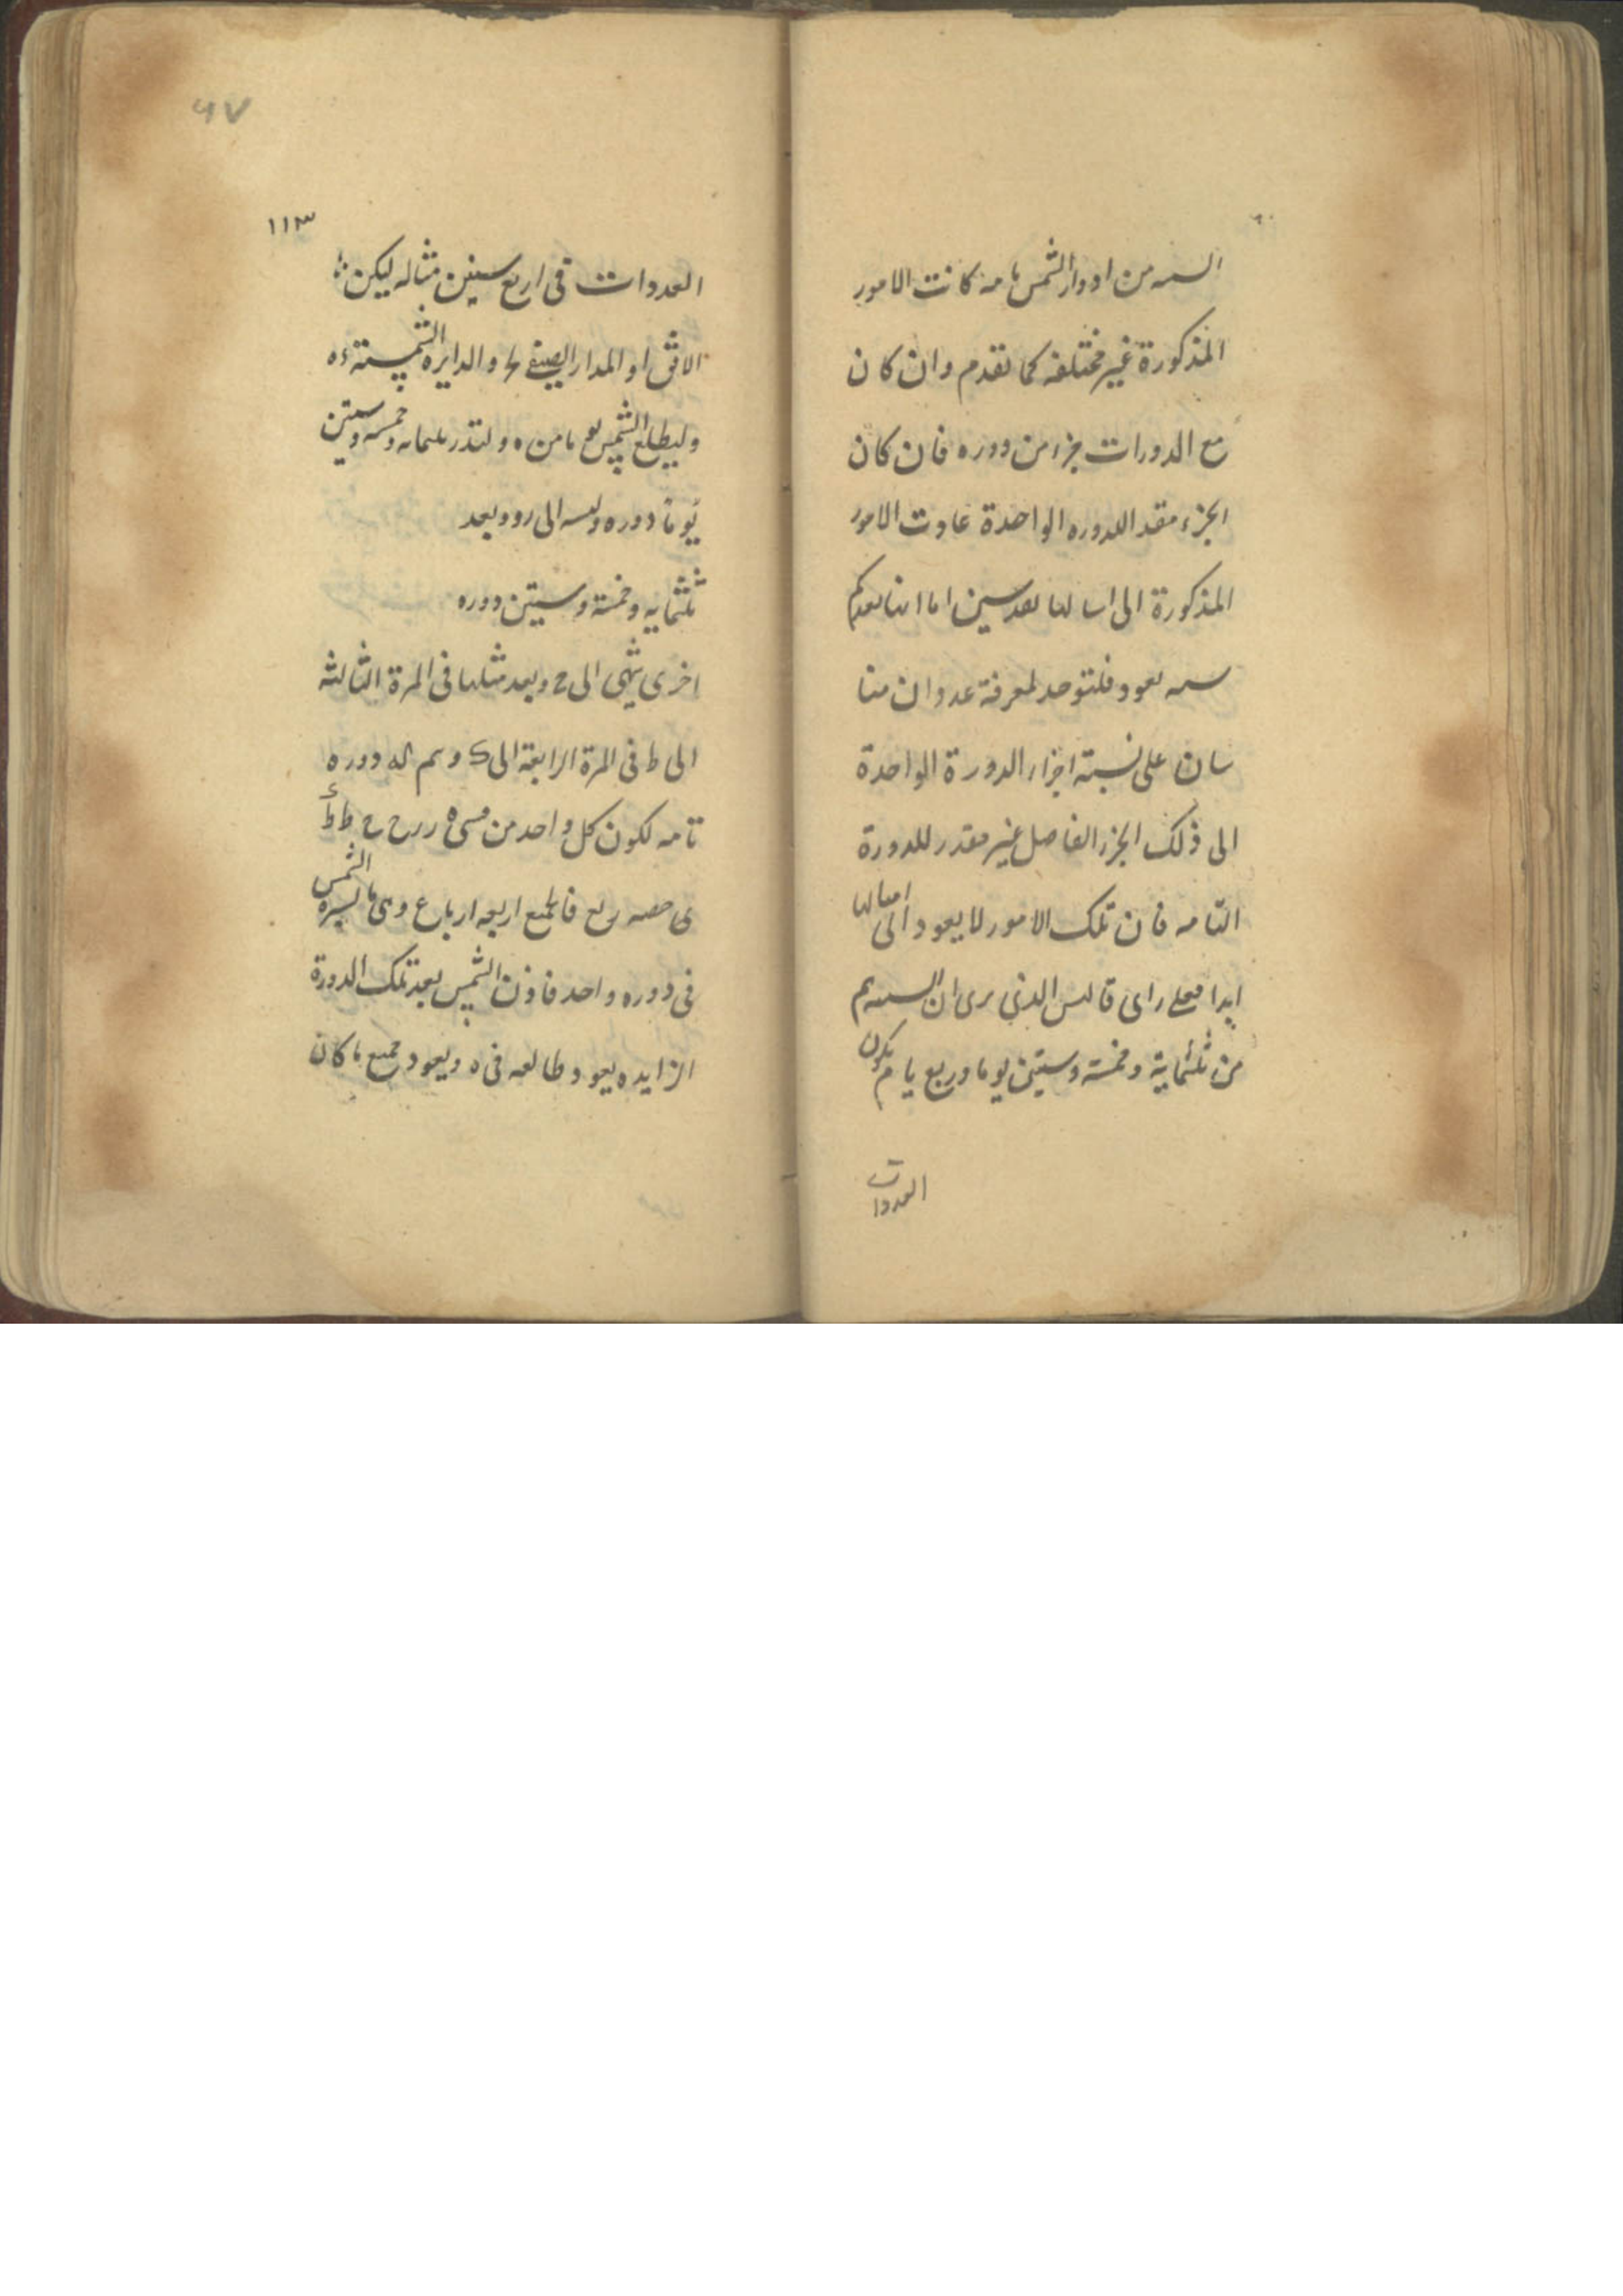 السنه من ادوار الشمس تامه كانت الامور
المذكورة غير مختلفه كما تقدم وان كان
مع الدورات جزء من دوره فان كان
الجزء مقدا للدوره الواحدة عادت الامور
المذكورة الى
سه يعود فلتوحد لمعرفة عدد ان
سان على نسبته اجزاء الدورة الواحدة
الى ذلك الجزء الفاصل غير مقدر للدورة
التامه فان تلك الامور لا يعود الى امثالها
ابدا فعلى راى قالس الذى يرى ان السنه
من ثلثماية وخمسته وستين يوما وربع يوم يكون
العودات
٩٧
١١٣
العودات فى اربع سنين مثاله ليكن
الافق او المدار الصيفى والدايره الشمسيته ٥٥
وليطلع الشمس يوما من ٥ ولتدر ثلثمايه وخمسه وستين
يوما دوره الى ر وبعد
ثلثمايه وخمسته وستين دوره
اخرى ينتهى الى ح وبعد مثلها فى المرة الثالثه
الى ط فى المرة الرابعة الى ى دوره
تامه لكون كل واحد من
ى حصه ربع فالجميع اربعه ارباع وهى ما تسيره الشمس
فى دوره واحد فاذن الشمس بعد تلك الدورة
الزايده يعود طالعه فى ٥ ويعود جميع ما كان